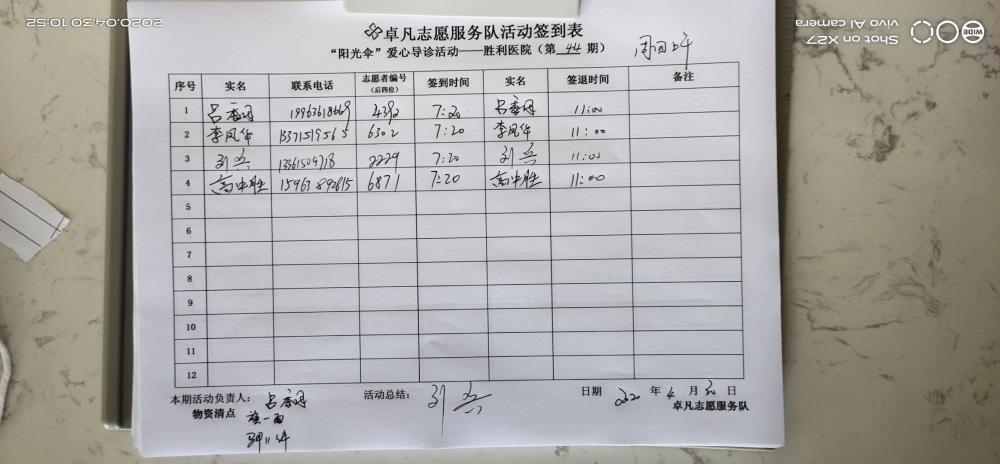 卓凡志愿服务队活动签到表
“阳光伞”爱心导诊活动——胜利医院（第 44 期） 周四上午
序号 实名 联系电话 志愿者编号（后四位） 签到时间 实名 签退时间 备注
1 吕香 19963618669 4392 7:20 吕香 11:00
2 李凤华 13371519565 6302 7:20 李凤华 11:00
3 刘兵 2229 7:20 刘兵 11:00
4 高中胜 6871 7:20 高中胜 11:00
5
6
7
8
9
10
11
12
本期活动负责人： 吕香 活动总结： 刘兵 日期 年 4 月 30 日
物资清点 旗一面 卓凡志愿服务队
2020.04.30 10:52
Shot on X27
vivo AI camera